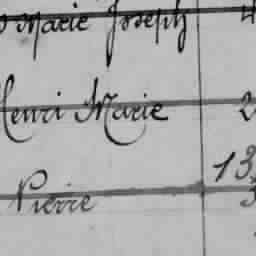 Marie Joseph 4
Henri Marie 2
13
Pierre